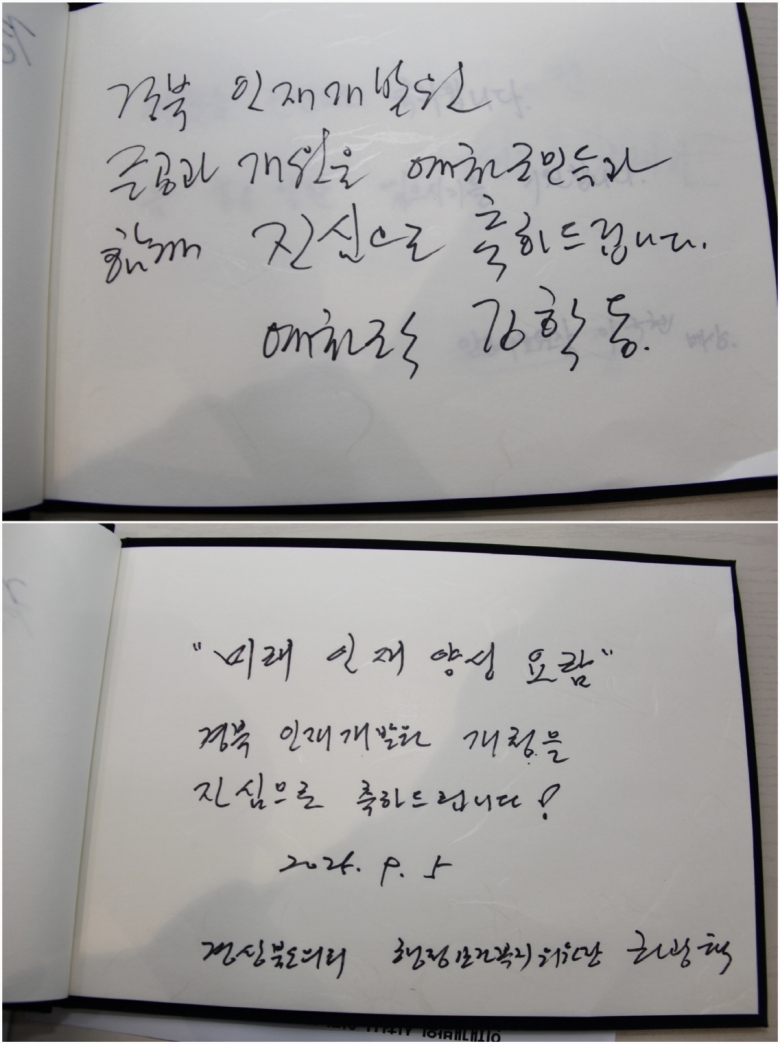 경북 인재개발원
준공과 개원을 예천군민들과
함께 진심으로 축하드립니다.
예천군수 김학동.
"미래 인재 양성 요람"
경북 인재개발원 개청을
진심으로 축하드립니다!
9. 5
경상북도의회 행정보건복지위원장 권광택